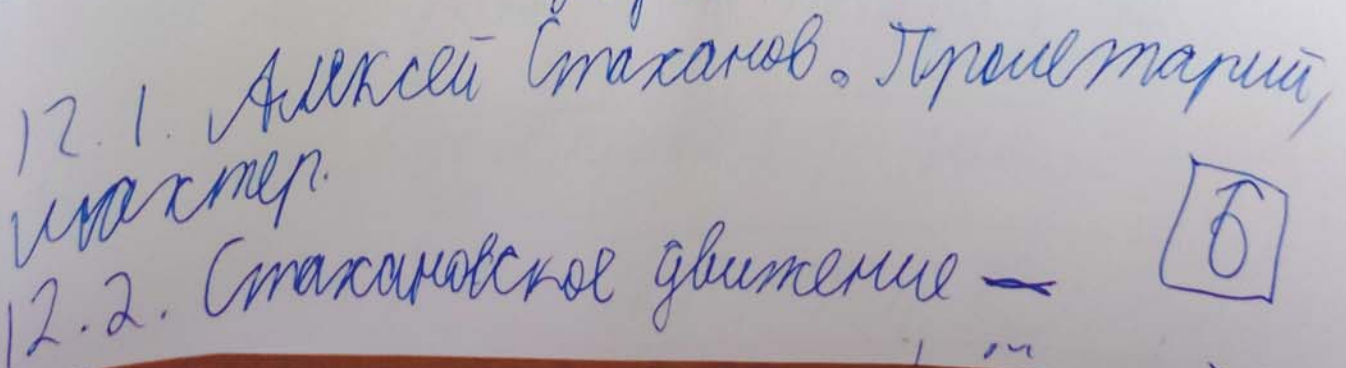 12.1. Алексей Стаханов. Пролетарий,
шахтер.
12.2. Стахановское движение –
Б